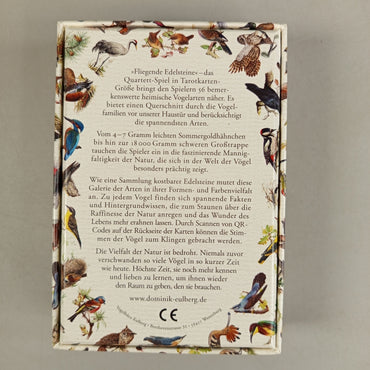 »Fliegende Edelsteine«—das
Quartett-Spiel in Tarotkarten-
Größe bringt den Spielern 56 bemer-
kenswerte heimische Vogelarten näher. Es
bietet einen Querschnitt durch die Vogel-
familien vor unserer Haustür und berücksichtigt
die spannendsten Arten.
Vom 4–7 Gramm leichten Sommergoldhähnchen
bis hin zur 18 000 Gramm schweren Großtrappe
tauchen die Spieler ein in die faszinierende Mannig-
faltigkeit der Natur, die sich in der Welt der Vögel
besonders prächtig zeigt.
Wie eine Sammlung kostbarer Edelsteine mutet diese
Galerie der Arten in ihrer Formen- und Farbenvielfalt
an. Zu jedem Vogel finden sich spannende Fakten
und Hintergrundwissen, die zum Staunen über die
Raffinesse der Natur anregen und das Wunder des
Lebens mehr erahnen lassen. Durch Scannen von QR-
Codes auf der Rückseite der Karten können die Stim-
men der Vögel zum Klingen gebracht werden.
Die Vielfalt der Natur ist bedroht. Niemals zuvor
verschwanden so viele Vögel in so kurzer Zeit
wie heute. Höchste Zeit, sie noch mehr kennen
und lieben zu lernen, um ihnen wieder
den Raum zu geben, den sie brauchen.
www.dominik-eulberg.de
CE